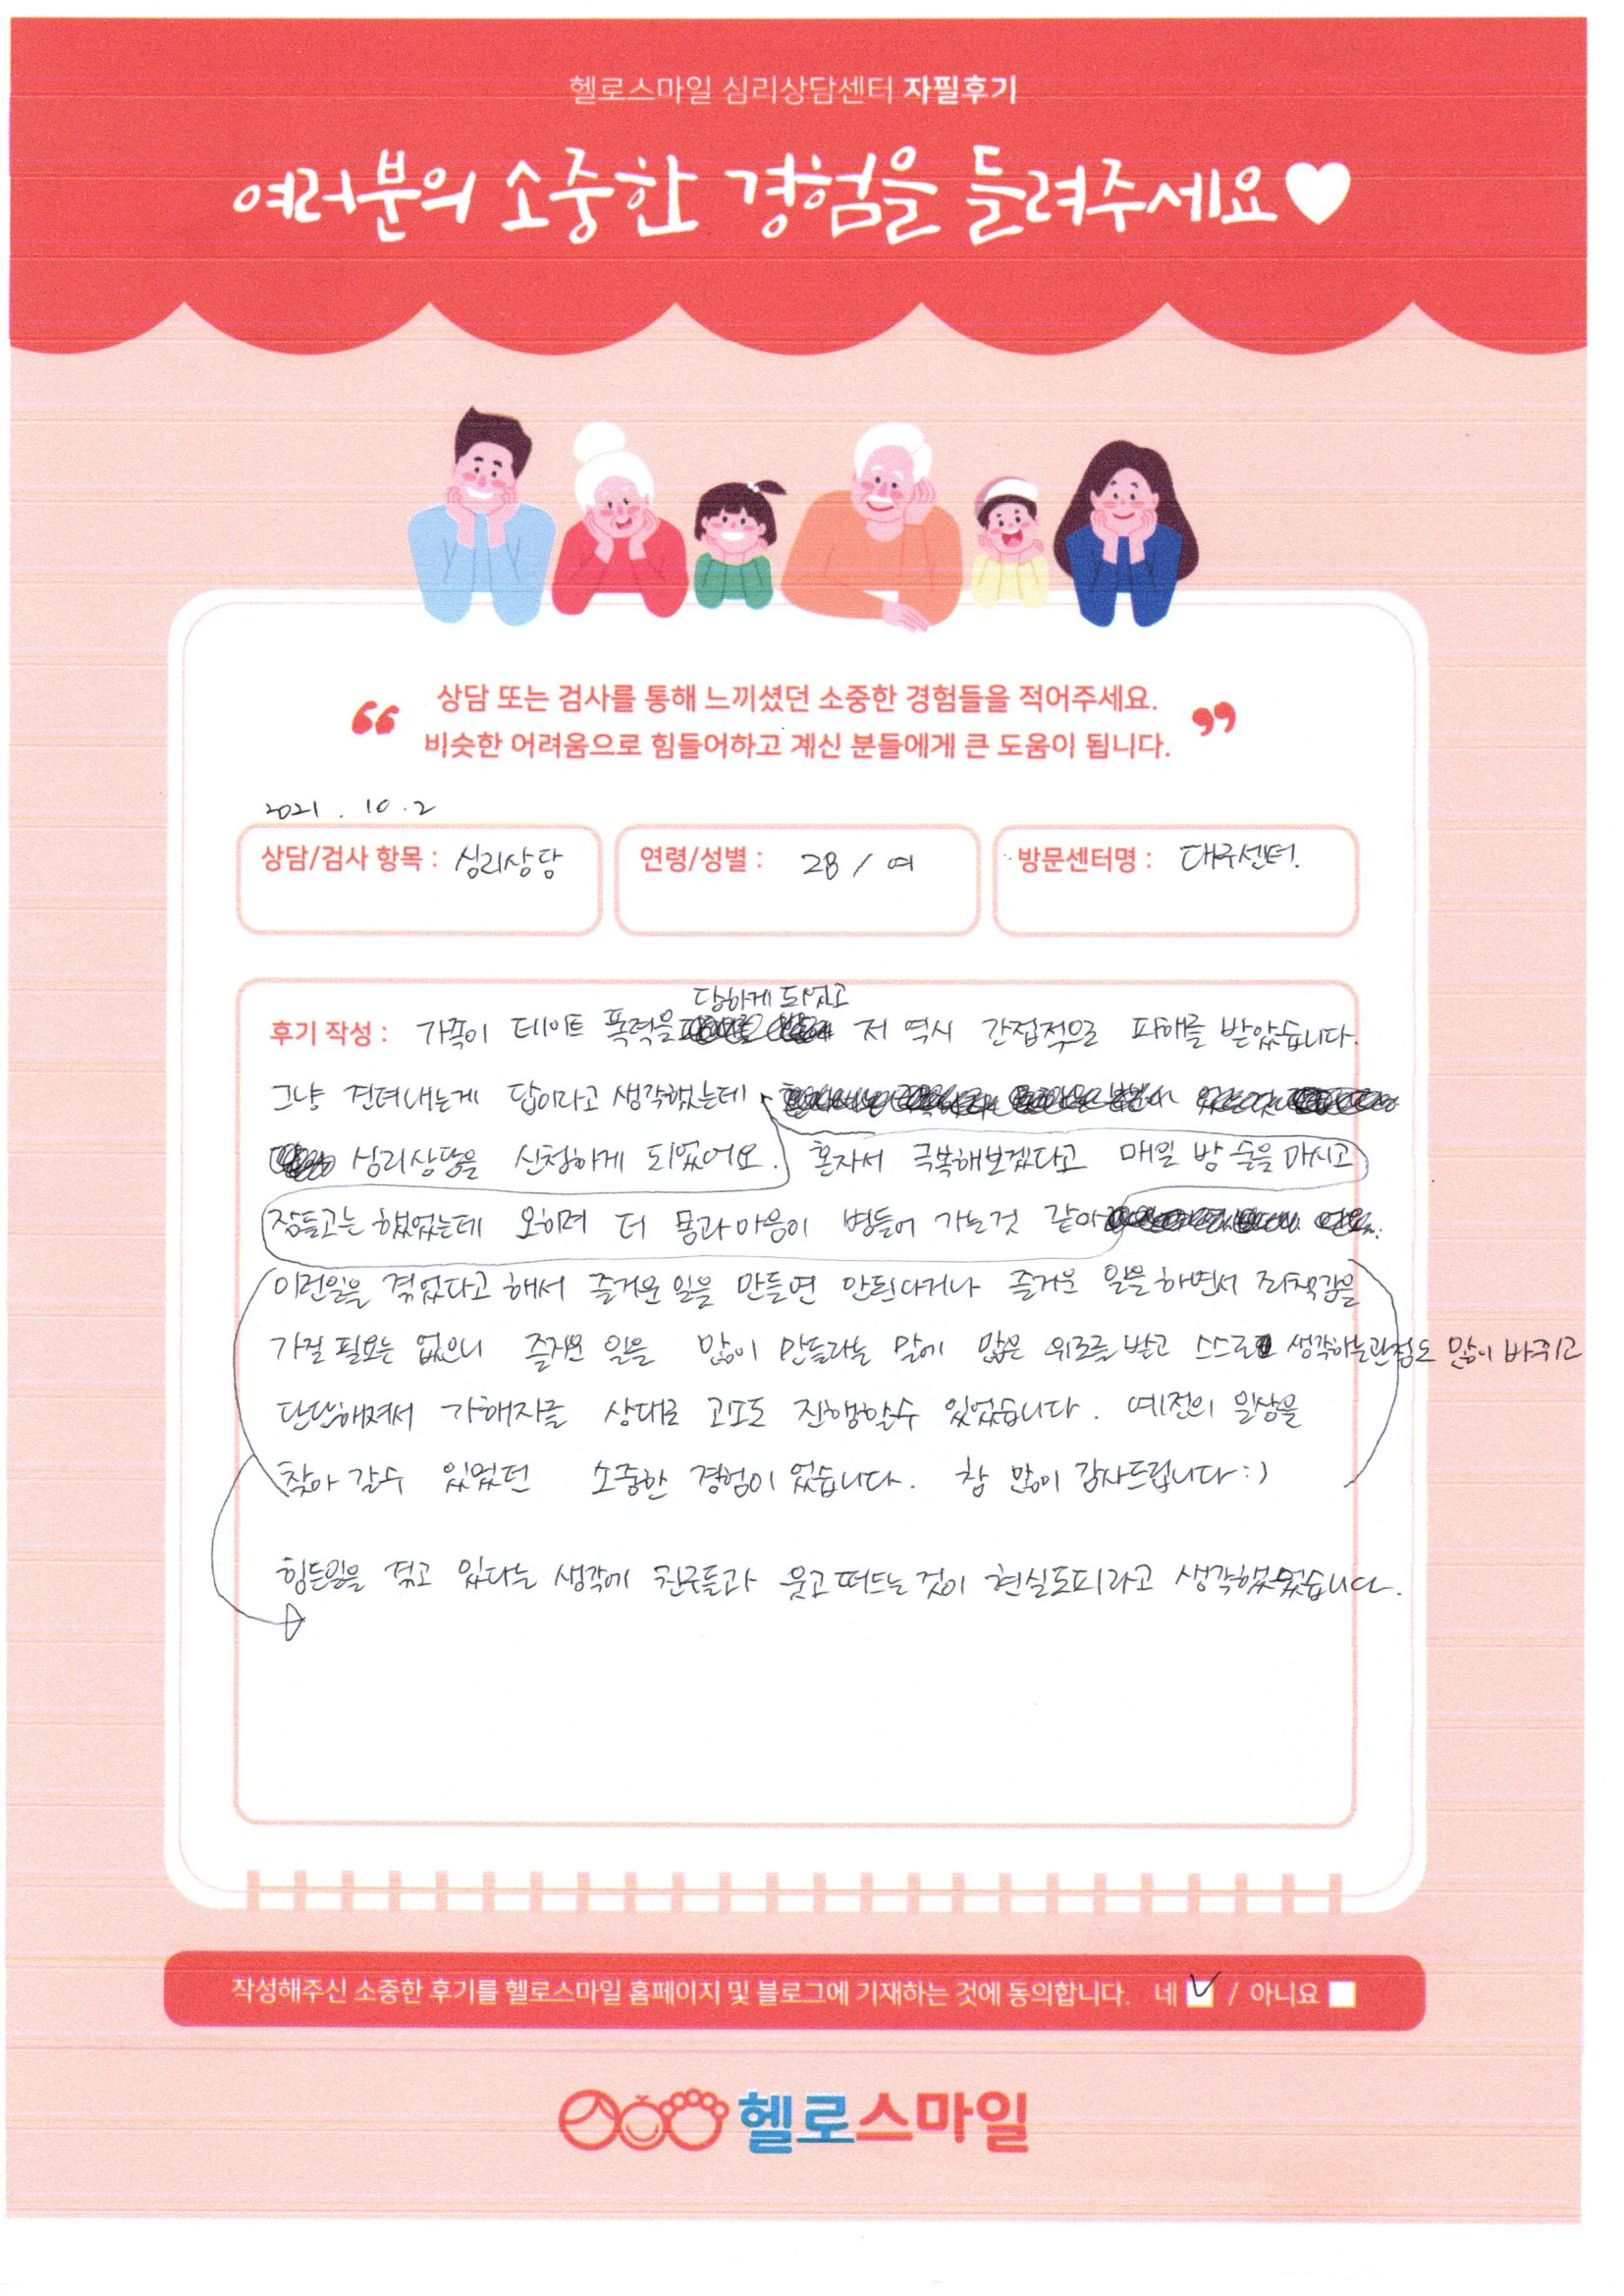 헬로스마일 심리상담센터 자필후기
여러분의 소중한 경험을 들려주세요
상담 또는 검사를 통해 느끼셨던 소중한 경험들을 적어주세요.
비슷한 어려움으로 힘들어하고 계신 분들에게 큰 도움이 됩니다.
2021. 10. 2
상담/검사 항목 : 심리상담
연령/성별 : 28 / 여
방문센터명 : 대구센터.
당하게 되었고
후기 작성 : 가족이 데이트 폭력을 저 역시 간접적으로 피해를 받았습니다.
그냥 견뎌내는게 답이라고 생각했는데
심리상담을 신청하게 되었어요. 혼자서 극복해보겠다고 매일 밤 술을 마시고
잠들고는 했었는데 오히려 더 몸과 마음이 병들어 가는것 같아
이런일을 겪었다고 해서 즐거운 일을 만들면 안된다거나 즐거운 일을 하면서 죄책감을
가질 필요는 없으니 즐거운 일을 많이 만들라는 말에 많은 위로를 받고 스스로 생각하는 관점도 많이 바뀌고
단단해져서 가해자를 상대로 고소도 진행할수 있었습니다. 예전의 일상을
찾아 갈수 있었던 소중한 경험이 었습니다. 참 많이 감사드립니다 :)
힘든일을 겪고 있다는 생각에 친구들과 웃고 떠드는 것이 현실도피라고 생각했었습니다.
작성해주신 소중한 후기를 헬로스마일 홈페이지 및 블로그에 기재하는 것에 동의합니다. 네 / 아니요
헬로스마일